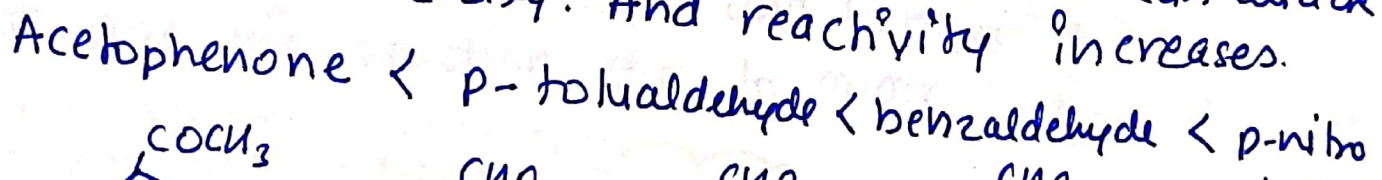 And reactivity increases.
Acetophenone < p-tolualdehyde < benzaldehyde < p-nitro
COCH3 CHO CHO CHO